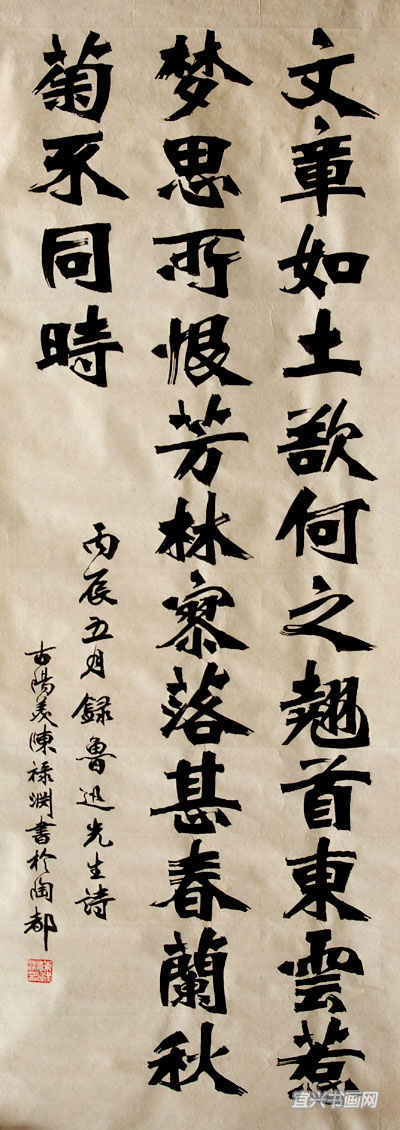 文章如土欲何之翹首東雲惹
梦思所恨芳林寥落甚春蘭秋
菊不同時
丙辰五月録魯迅先生詩
古陽羨陳禄渊書於陶都
宜兴书画网